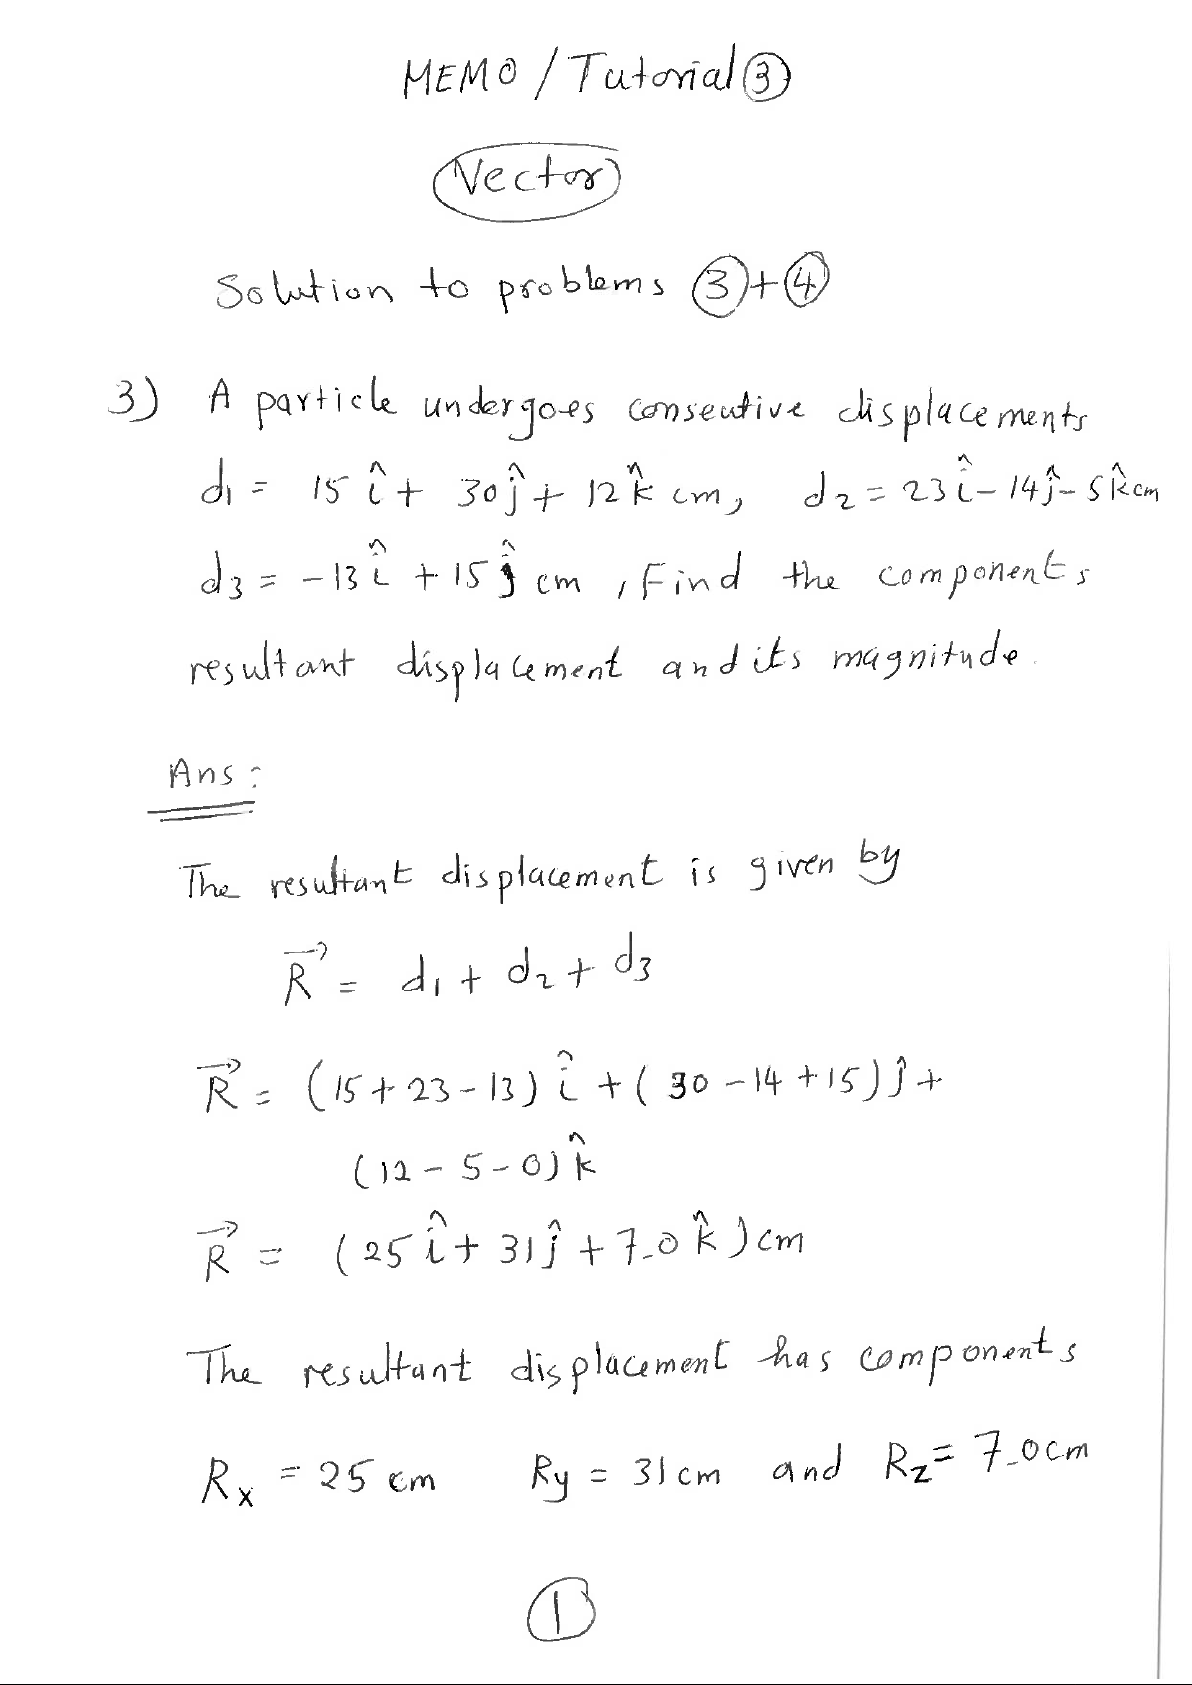 MEMO / Tutorial ③
Vector
Solution to problems ③+④
3) A particle undergoes consentive displacements
d1 = 15 î + 30 ĵ + 12 k̂ cm, d2 = 23 î - 14 ĵ - 5 k̂ cm
d3 = -13 î + 15 ĵ cm , Find the components
resultant displacement and its magnitude.
Ans :
The resultant displacement is given by
R⃗ = d1 + d2 + d3
R⃗ = (15 + 23 - 13) î + ( 30 - 14 + 15) ĵ +
(12 - 5 - 0) k̂
R⃗ = (25 î + 31 ĵ + 7.0 k̂ ) cm
The resultant displacement has components
Rx = 25 cm Ry = 31 cm and Rz = 7.0 cm
①